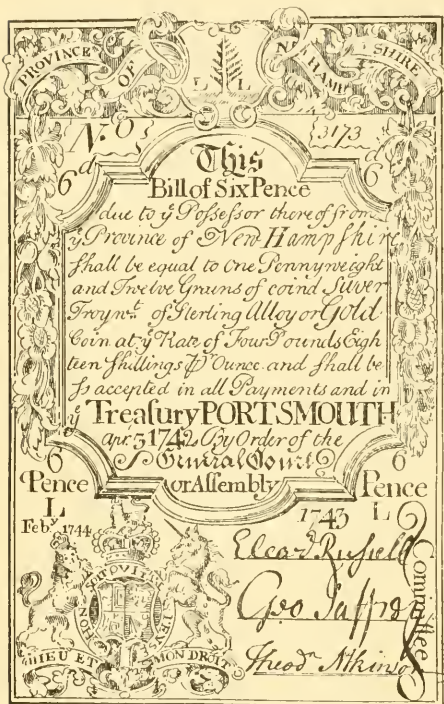 PROVINCE OF NEW HAMP SHIRE
L L
No. 6 3173
6d This 6d
Bill of Six Pence
due to ye Poſseſsor thereof from
ye Province of New Hampſhire
ſhall be equal to One Pennyweight
and Twelve Grains of coind Silver
Troy wt. of Sterling Alloy or Gold
Coin at ye Rate of Four Pounds Eigh
teen ſhillings ⅌r Ounce and ſhall be
ſo accepted in all Payments and in
ye Treaſury PORTSMOUTH
Apr. 3 1742 By Order of the
6 General Court 6
Pence or Aſsembly Pence
L 1743 L
Feby. 1744
HONI SOIT QUI
DIEU ET MON DROIT
Eleazr. Ruſsell
Geo Jaffrey
Theodr. Atkinson
Committee